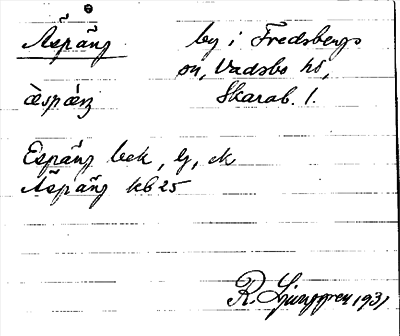 Äspäng by i Fredsbergs
sn, Vadsbo hd,
Skarab. l.
Espäng bek, G, ek
Äspäng kb 25
R. Ljunggren 1931